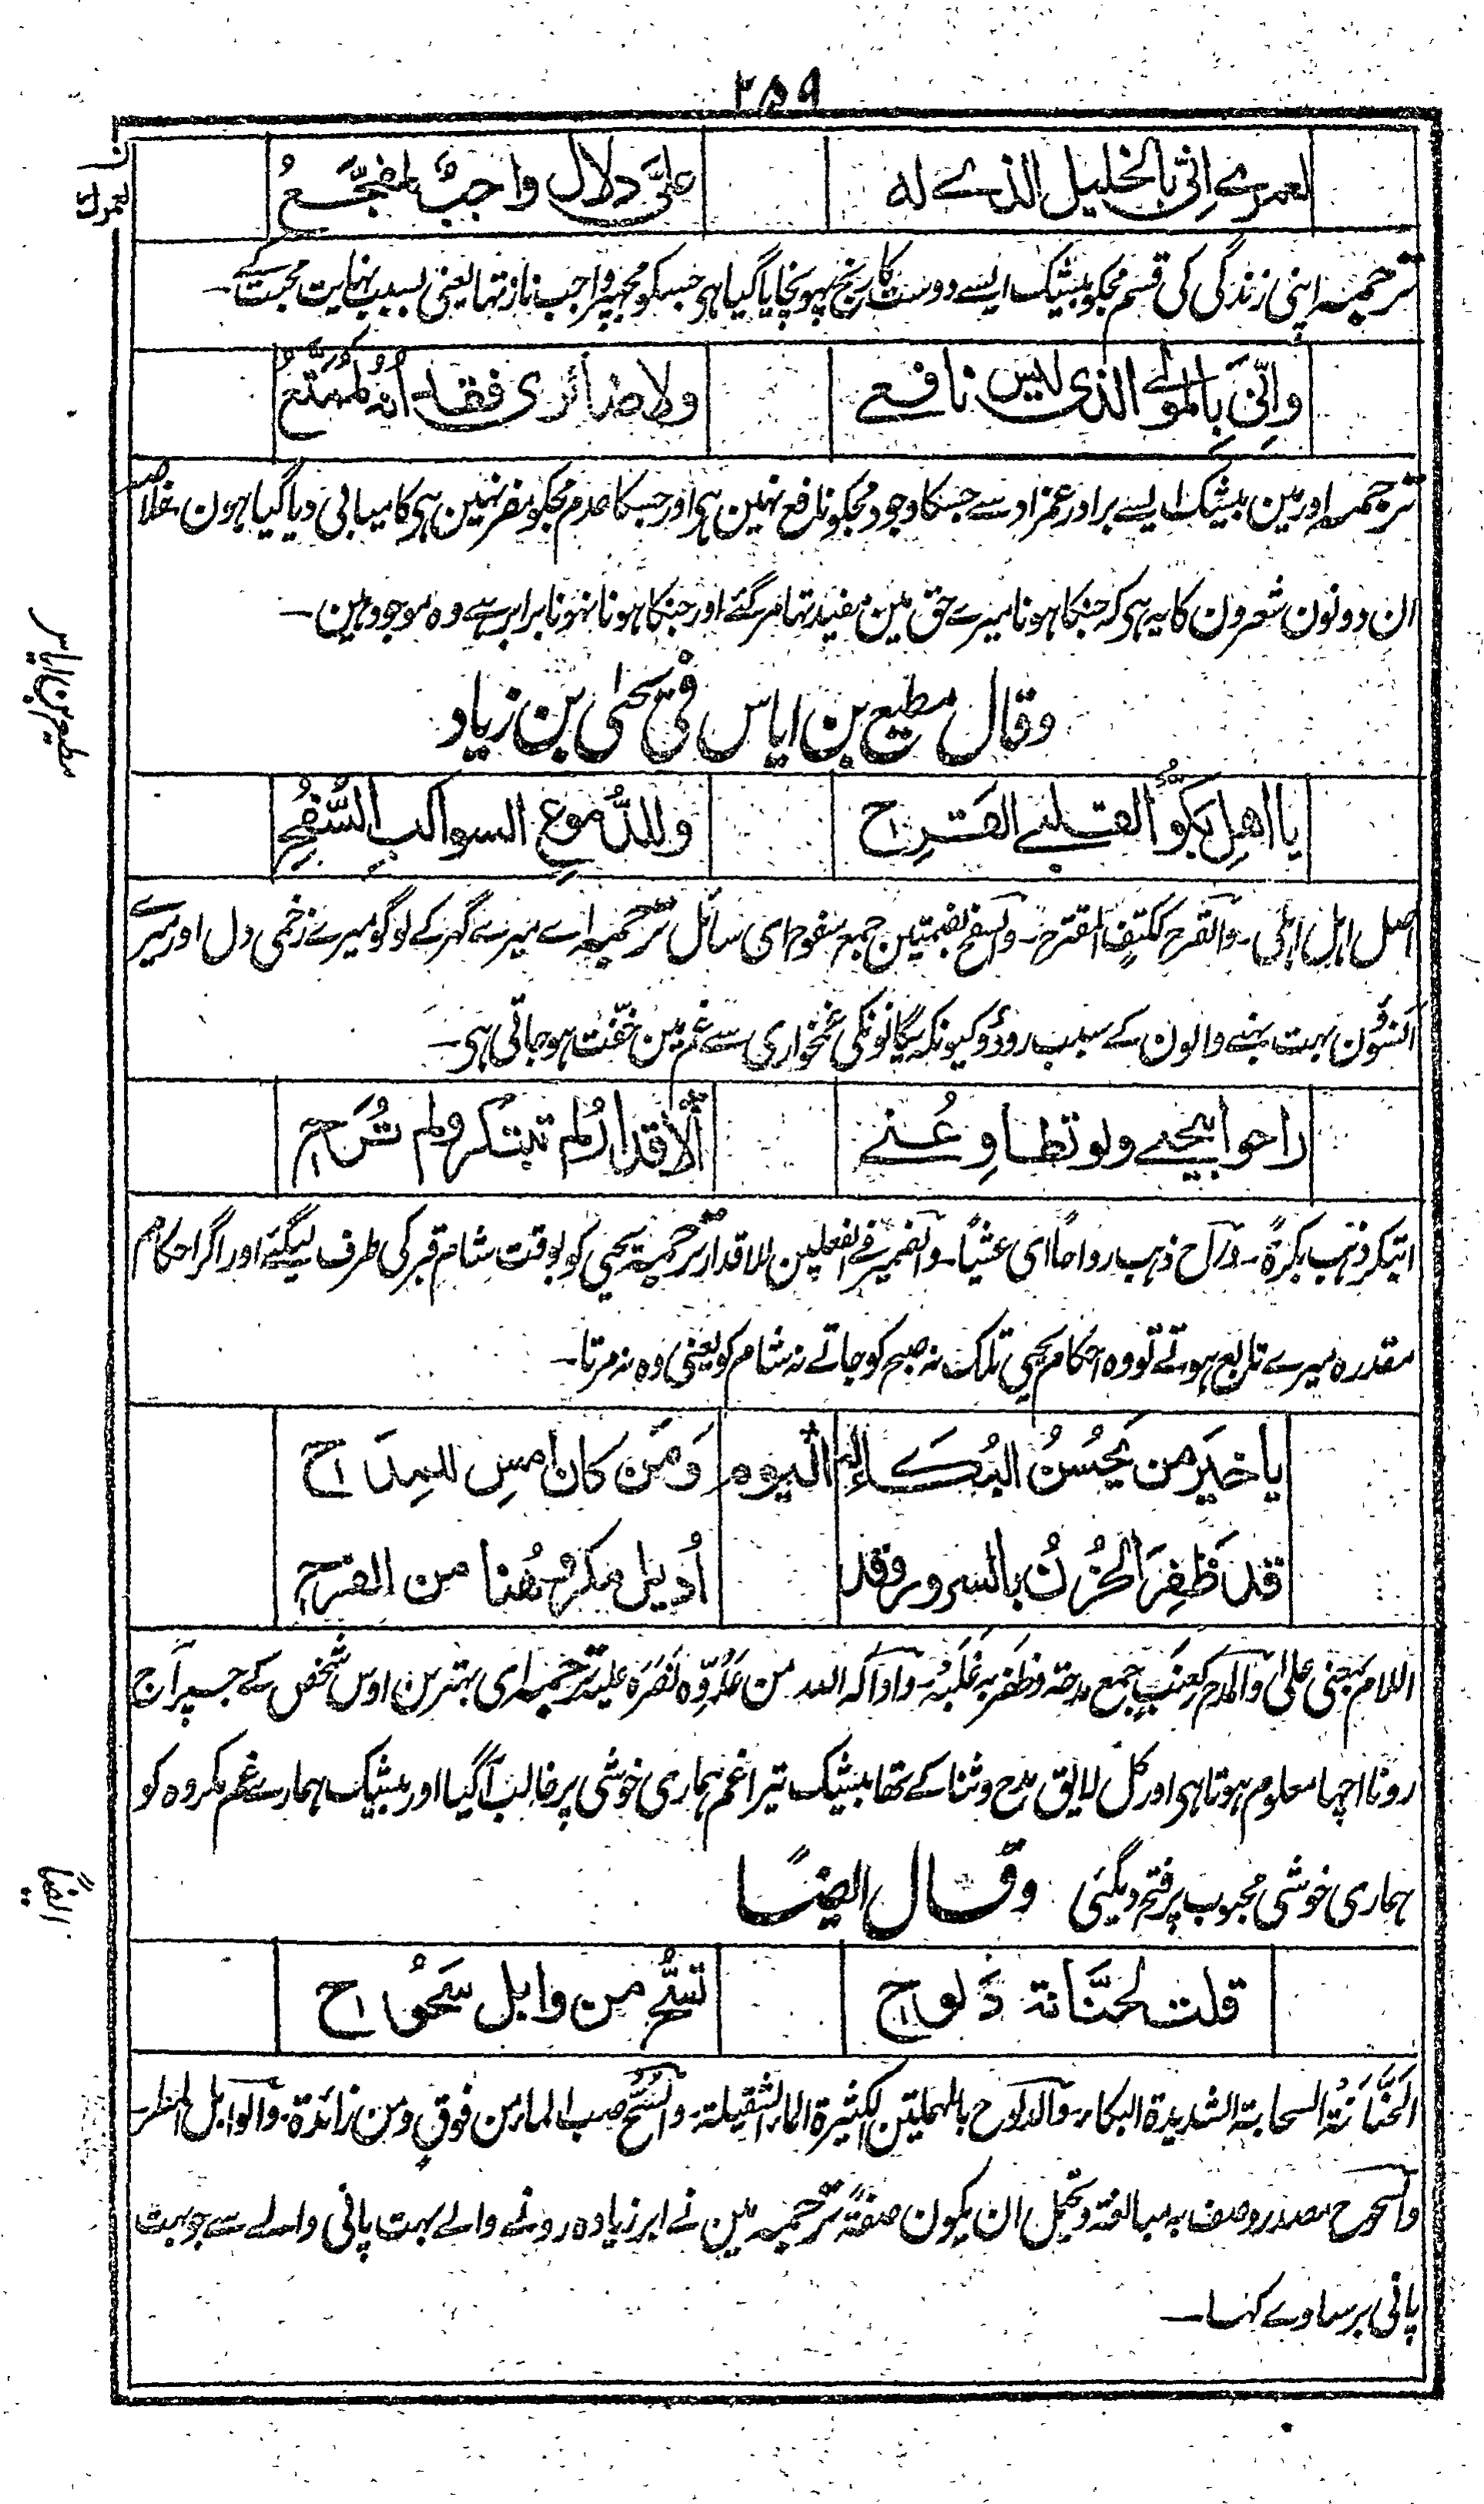 ۲۵۹
لعمرے اِنّی بالخلیل الذے له علیَّ دلال واجبٌ لمفجَّعُ
لعمرك
ترجمہ اپنی زندگی کی قسم مجکو بیشک ایسے دوست کا رنج پہونچایا گیا ہی جسکو مجہپر واجب ناز تہا یعنی بسبب نہایت محبت کے۔
وانّی بالمولے الذی لیس نافعے ولا ضائری فقدانُهُ لممتّعُ
ترجمہ اور مین بیشک ایسے برادر عمزاد سے جسکا وجود مجکو نافع نہین ہی اور جسکا عدم مجکو مضر نہین ہی کامیابی دیا گیا ہون خلاصہ
ان دونون شعرون کا یہ ہی کہ جنکا ہونا میرے حق مین مفید تہا مر گئے اور جنکا ہونا نہونا برابر ہے وہ موجود ہین۔
مطیع بن ایاس
وقال مطیع بن ایاس فی یحیٰی بن زیاد
یا اهلِ بَكُّوا لقلبے القَرِح وللدُّموع السواكبِ السُّفُحِ
اصل اہل اہلی۔ والقرح ککتف المقترح۔ والسفح بضمتین جمع سفوح ای سائل ترجمہ اے میرے گہر کے لوگو میرے زخمی دل اور میرے
آنسوؤن بہت بہنے والون کے سبب روؤ کیونکہ یگانونکی غمخواری سے غم مین خفّت ہو جاتی ہی۔
راحوا بیحیے ولو تطاوِعُنے الأقدارُ لم تبتكر ولم تُرَحِ
ابتکر ذہب بکرۃً۔ وراح ذہب رواحاً ای عشیاً۔ والضمیر فے الفعلین للاقدار ترجمہ یحیی کو بوقت شام قبر کی طرف لیگئے اور اگر احکام
مقدرہ میرے تابع ہوتے تو وہ احکام یحیی تلک نہ صبح کو جاتے نہ شام کو یعنی وہ نہ مرتا۔
یا خیرَ من یَحسُنُ البُكاءُ له الیوم وَمَن كان امسِ للمِدَح
قد ظَفِرَ الحُزنُ بالسرور وقد اُدیل مكروهُنا من الفرح
اللام بمعنی علی والمدح کعنب جمع مدحۃ وظفر بہ غلبہ۔ وادالہ اللہ من عدُوِّہ نصَرَہ علیہ ترجمہ ای بہترین اوس شخص کے جسپر آج
رونا اچہا معلوم ہوتا ہی اور کل لایق مدح وثنا کے تھا بیشک تیرا غم ہماری خوشی پر غالب آگیا اور بیشک ہمارے غم مکروہ کو
ہماری خوشی محبوب پر فتح دیگئی وقال ایضًا
ایضًا
قلت لحنَّانة دَلوح تسُّح من وابل سَحُوح
الحَنَّانَۃُ السحابۃ الشدیدۃ البکاء۔ والدلوح بالمہملتین الکثیرۃ الماء الثقیلۃ۔ والسُّح صب الماء من فوق ومن زائدۃ۔ والوابل المطر۔
والسحوح مصدر وصف بہ مبالغۃ ویحتمل ان یکون صفۃً ترجمہ مین نے ابر زیادہ رونے والے بہت پانی والے سے جو بہت
پانی برساوے کہا۔